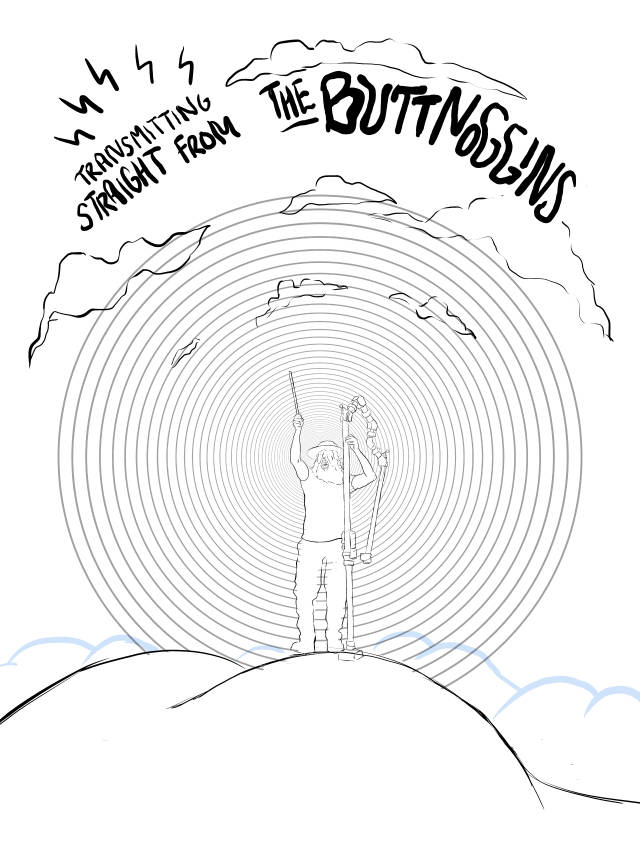 TRANSMITTING
STRAIGHT FROM
THE BUTTNOGGINS